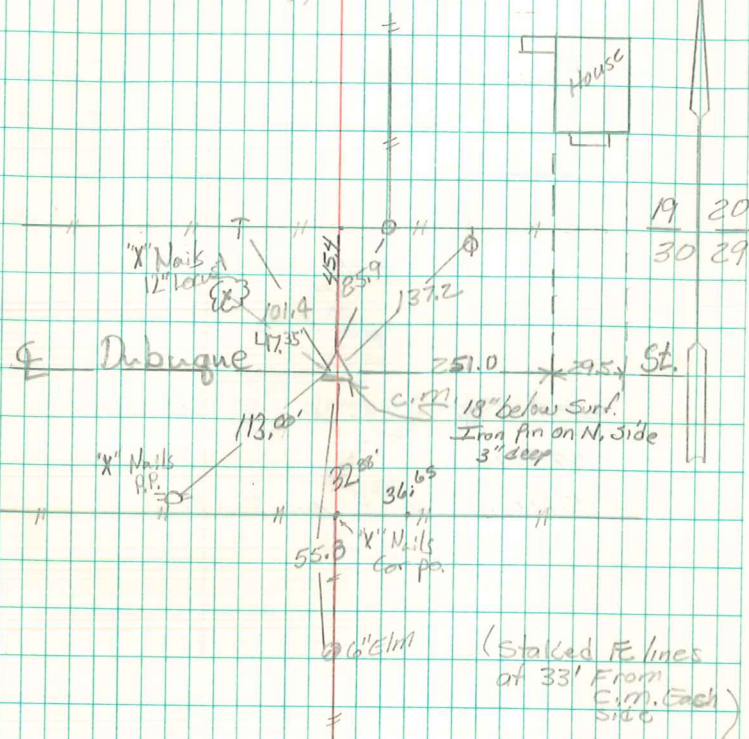 House
19 | 20
30 | 29
T
"X" Nails
12" Locust
45.4
85.9
137.2
101.4
47.35'
℄ Dubuque St.
251.0
29.5
C.M. 18" below Surf.
Iron Pin on N. Side
3" deep
113.00'
"X" Nails
P.P.
32.88'
36.65
"X" Nails
Cor po.
55.8
6" Elm
(Staked FE lines
at 33' From
C.M. Each
Side)